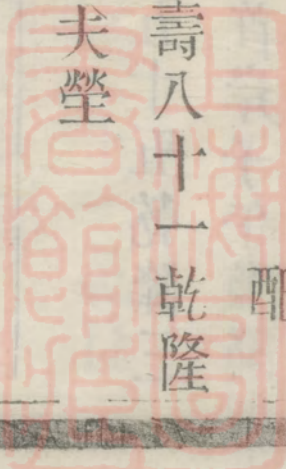 配
壽八十一乾隆
夫塋